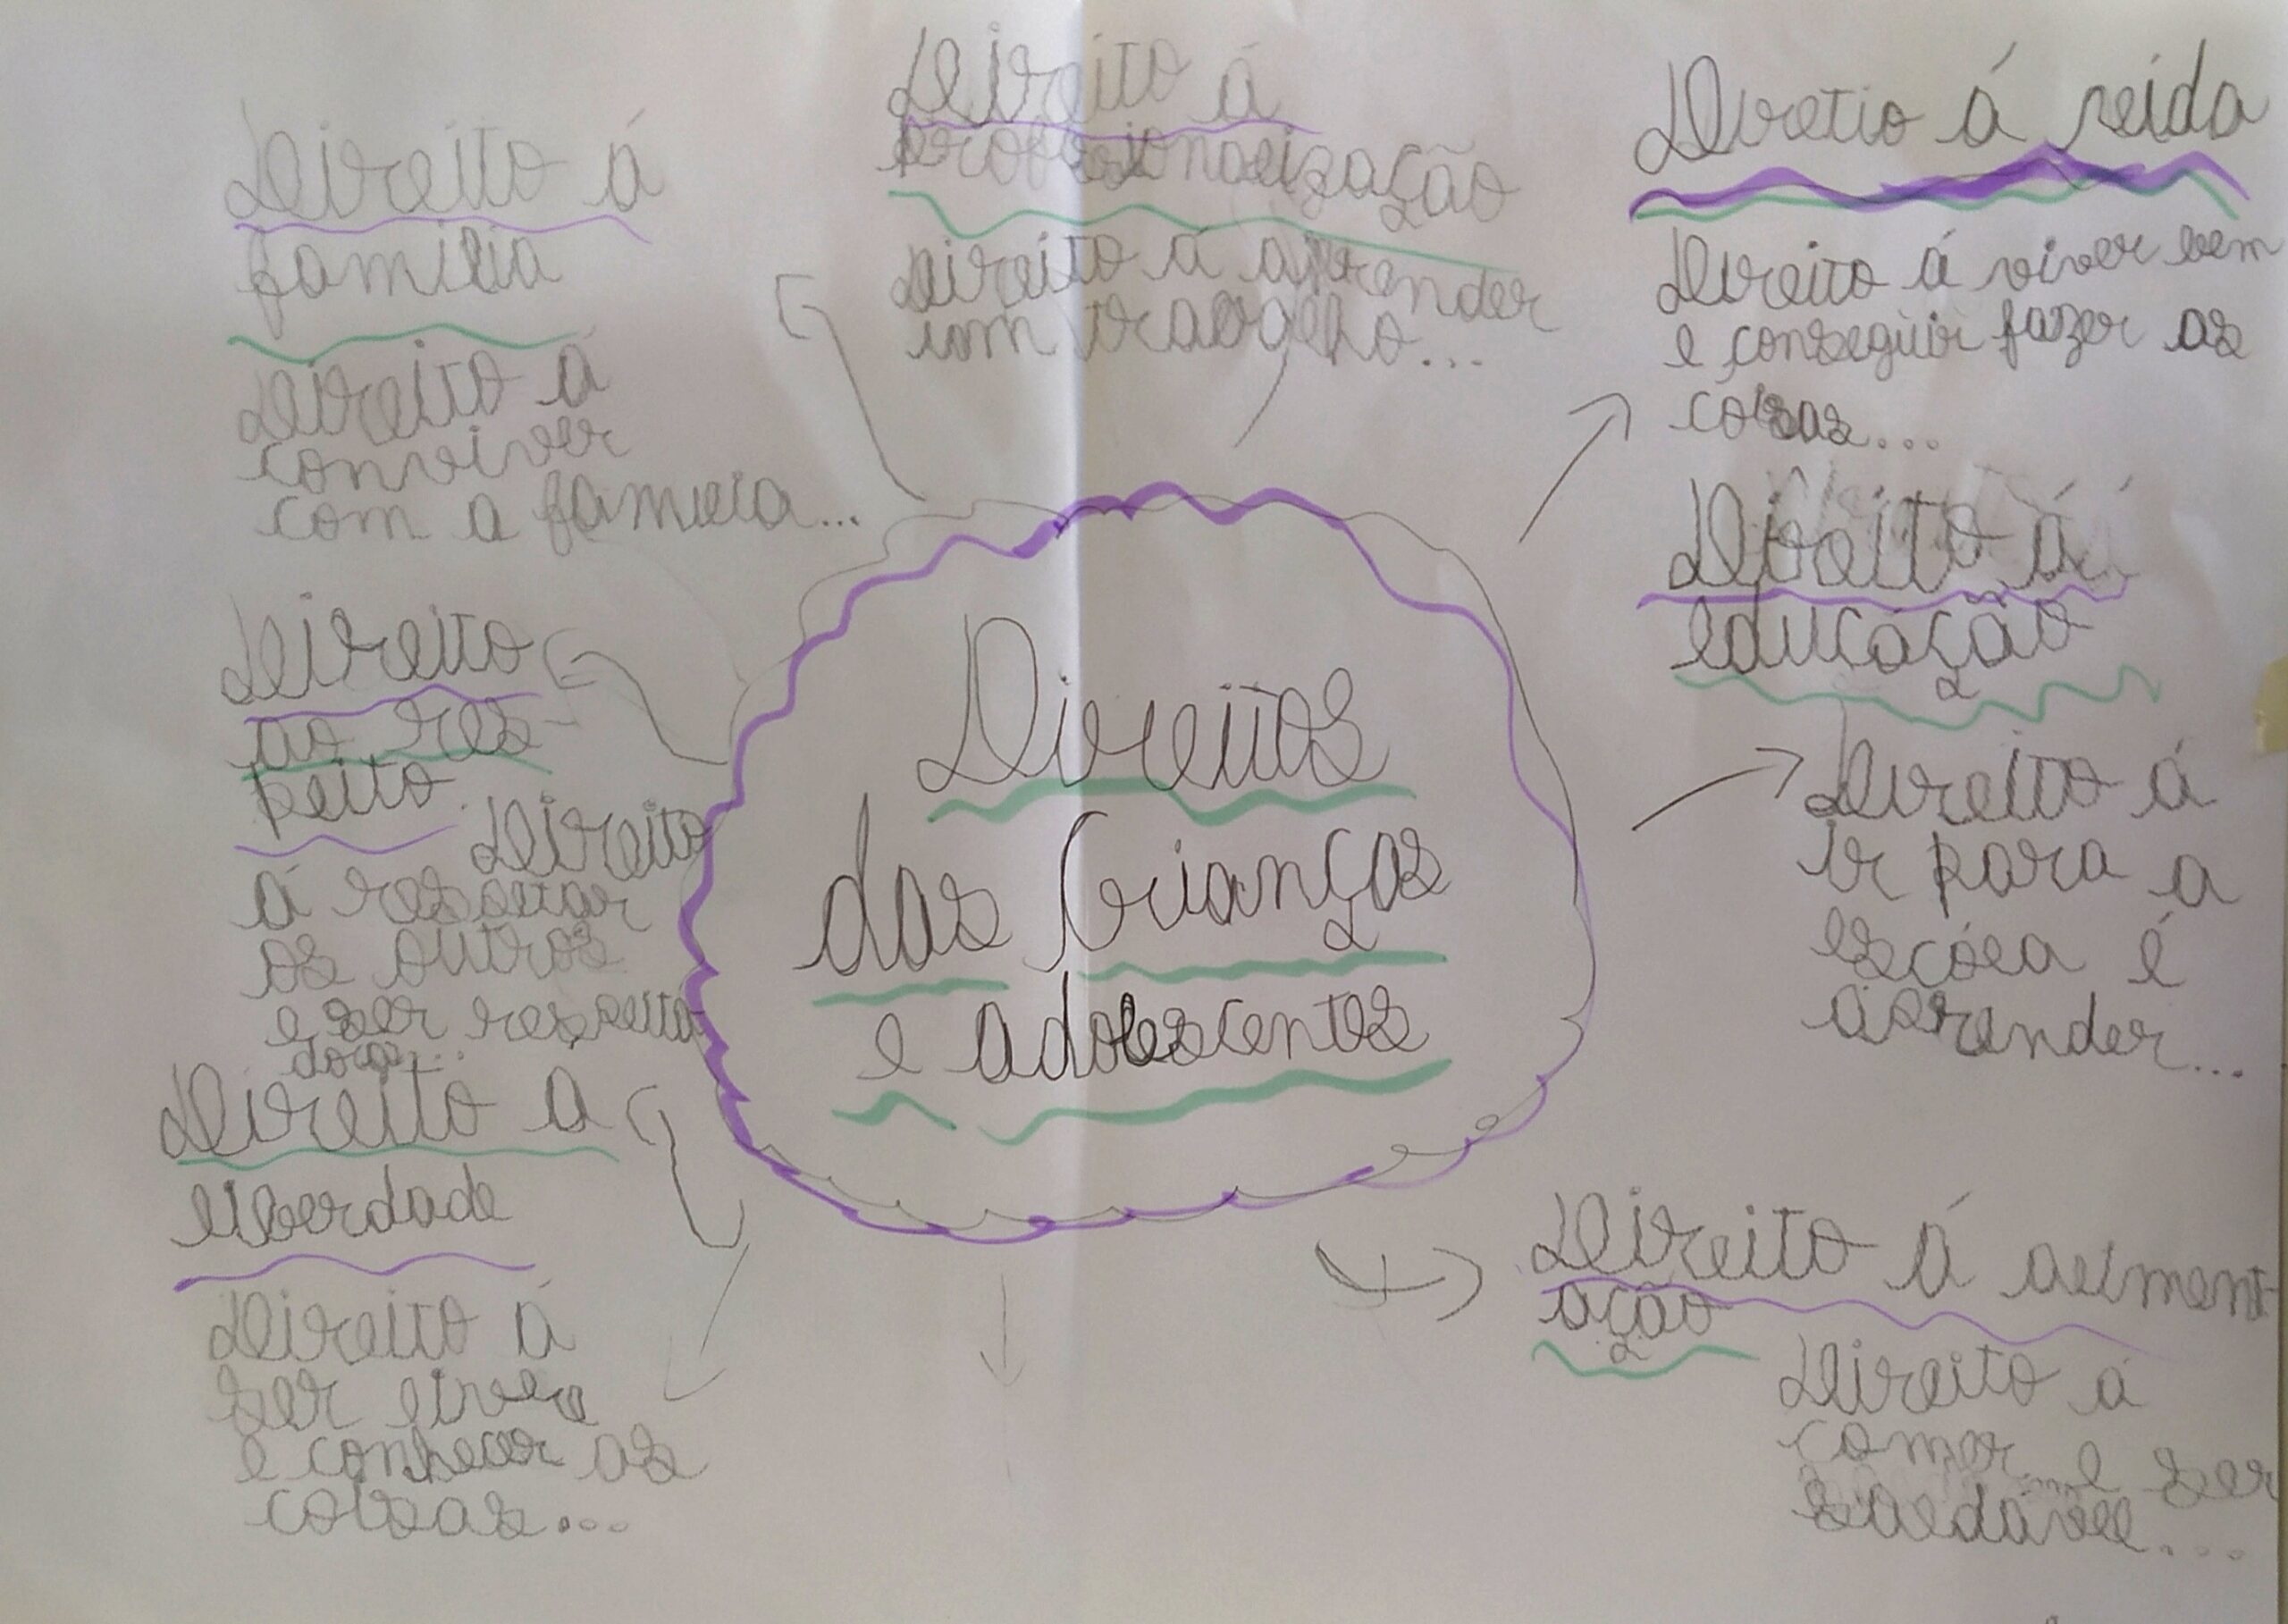 Direito á
família
Direito á
conviver
com a família...
Direito á
profissionalização
Direito á aprender
um trabalho...
Diretio á vida
Direito á viver bem
e conseguir fazer as
coisas...
Direito á
educáção
Direito á
ir para a
escóla é
áprender...
Direitos
das Crianças
e adolescentes
Direito
ao res-
peito
Direito
á respeitar
os outros
e ser respeita
do...
Direito a
liberdade
Direito á
ser livre
e conhecer as
coisas...
Direito á aliment-
ação
Direito á
comer e ser
saudável...